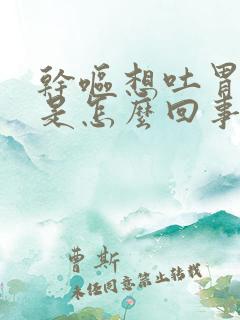 幹嘔想吐胃
是怎麼回事
曹斯
未经同意禁止转载